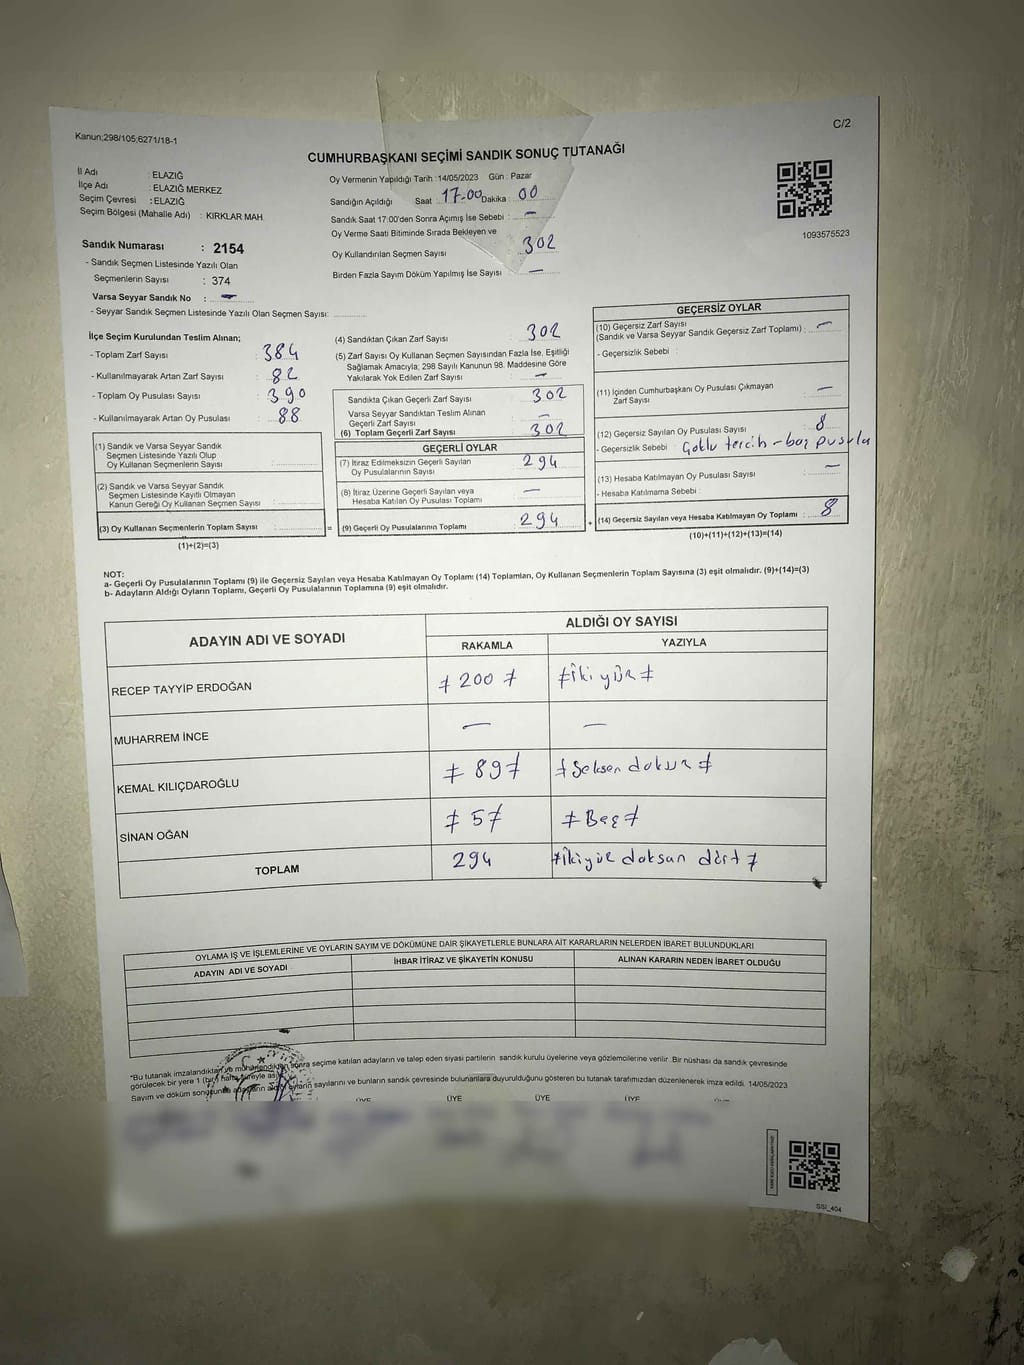 Kanun:298/105;6271/18-1
C/2
CUMHURBAŞKANI SEÇİMİ SANDIK SONUÇ TUTANAĞI
İl Adı : ELAZIĞ
İlçe Adı : ELAZIĞ MERKEZ
Seçim Çevresi : ELAZIĞ
Seçim Bölgesi (Mahalle Adı) : KIRKLAR MAH.
Sandık Numarası : 2154
- Sandık Seçmen Listesinde Yazılı Olan
Seçmenlerin Sayısı : 374
Varsa Seyyar Sandık No : —
- Seyyar Sandık Seçmen Listesinde Yazılı Olan Seçmen Sayısı:
Oy Vermenin Yapıldığı Tarih :14/05/2023 Gün : Pazar
Sandığın Açıldığı Saat : 17.00 Dakika : 00
Sandık Saat 17:00'den Sonra Açımış İse Sebebi : —
Oy Verme Saati Bitiminde Sırada Bekleyen ve
Oy Kullandırılan Seçmen Sayısı 302
Birden Fazla Sayım Döküm Yapılmış İse Sayısı —
1093575523
İlçe Seçim Kurulundan Teslim Alınan;
- Toplam Zarf Sayısı : 384
- Kullanılmayarak Artan Zarf Sayısı : 82
- Toplam Oy Pusulası Sayısı : 390
- Kullanılmayarak Artan Oy Pusulası : 88
(1) Sandık ve Varsa Seyyar Sandık
Seçmen Listesinde Yazılı Olup
Oy Kullanan Seçmenlerin Sayısı :
(2) Sandık ve Varsa Seyyar Sandık
Seçmen Listesinde Kayıtlı Olmayan
Kanun Gereği Oy Kullanan Seçmen Sayısı :
(3) Oy Kullanan Seçmenlerin Toplam Sayısı :
(1)+(2)=(3)
(4) Sandıktan Çıkan Zarf Sayısı : 302
(5) Zarf Sayısı Oy Kullanan Seçmen Sayısından Fazla İse, Eşitliği
Sağlamak Amacıyla; 298 Sayılı Kanunun 98. Maddesine Göre
Yakılarak Yok Edilen Zarf Sayısı : —
Sandıkta Çıkan Geçerli Zarf Sayısı : 302
Varsa Seyyar Sandıktan Teslim Alınan
Geçerli Zarf Sayısı : —
(6) Toplam Geçerli Zarf Sayısı : 302
GEÇERLİ OYLAR
(7) İtiraz Edilmeksizin Geçerli Sayılan
Oy Pusulalarının Sayısı : 294
(8) İtiraz Üzerine Geçerli Sayılan veya
Hesaba Katılan Oy Pusulası Toplamı : —
= (9) Geçerli Oy Pusulalarının Toplamı : 294
GEÇERSİZ OYLAR
(10) Geçersiz Zarf Sayısı
(Sandık ve Varsa Seyyar Sandık Geçersiz Zarf Toplamı) : —
- Geçersizlik Sebebi :
(11) İçinden Cumhurbaşkanı Oy Pusulası Çıkmayan
Zarf Sayısı : —
(12) Geçersiz Sayılan Oy Pusulası Sayısı : 8
- Geçersizlik Sebebi : Çoklu tercih - boş pusula
(13) Hesaba Katılmayan Oy Pusulası Sayısı : —
- Hesaba Katılmama Sebebi :
+ (14) Geçersiz Sayılan veya Hesaba Katılmayan Oy Toplamı : 8
(10)+(11)+(12)+(13)=(14)
NOT:
a- Geçerli Oy Pusulalarının Toplamı (9) ile Geçersiz Sayılan veya Hesaba Katılmayan Oy Toplamı (14) Toplamları, Oy Kullanan Seçmenlerin Toplam Sayısına (3) eşit olmalıdır. (9)+(14)=(3)
b- Adayların Aldığı Oyların Toplamı, Geçerli Oy Pusulalarının Toplamına (9) eşit olmalıdır.
ADAYIN ADI VE SOYADI
ALDIĞI OY SAYISI
RAKAMLA YAZIYLA
RECEP TAYYİP ERDOĞAN ≠ 200 ≠ ≠ İki yüz ≠
MUHARREM İNCE — —
KEMAL KILIÇDAROĞLU ≠ 89 ≠ ≠ Seksen dokuz ≠
SİNAN OĞAN ≠ 5 ≠ ≠ Beş ≠
TOPLAM 294 ≠ İkiyüz doksan dört ≠
OYLAMA İŞ VE İŞLEMLERİNE VE OYLARIN SAYIM VE DÖKÜMÜNE DAİR ŞİKAYETLERLE BUNLARA AİT KARARLARIN NELERDEN İBARET BULUNDUKLARI
ADAYIN ADI VE SOYADI İHBAR İTİRAZ VE ŞİKAYETİN KONUSU ALINAN KARARIN NEDEN İBARET OLDUĞU
"Bu tutanak imzalandıktan ve mühürlendikten sonra seçime katılan adayların ve talep eden siyasi partilerin sandık kurulu üyelerine veya gözlemcilerine verilir. Bir nüshası da sandık çevresinde
görülecek bir yere 1 (bir) hafta süreyle asılır.
Sayım ve döküm sonucunda adayların aldığı oyların sayılarını ve bunların sandık çevresinde bulunanlara duyurulduğunu gösteren bu tutanak tarafımızdan düzenlenerek imza edildi. 14/05/2023
ÜYE ÜYE ÜYE ÜYE
SSİ_404